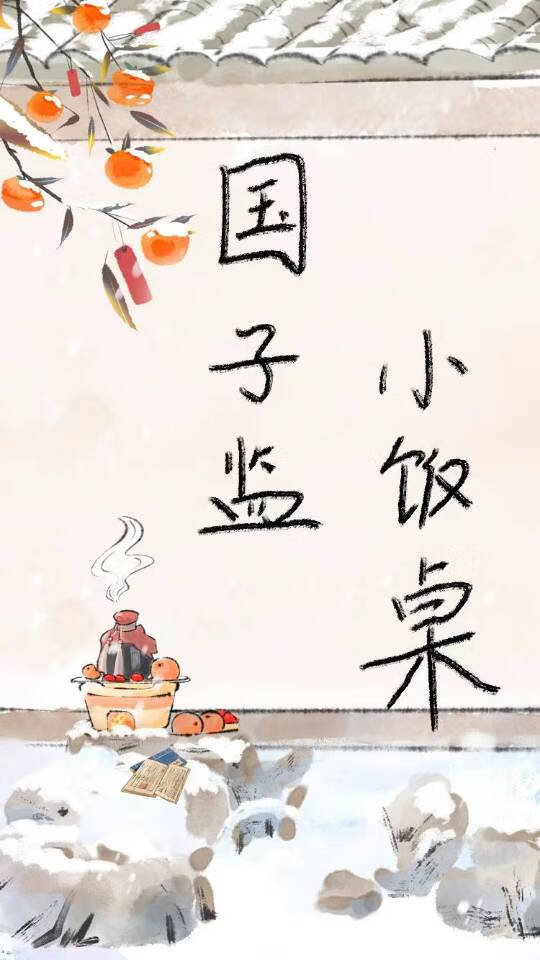 国子监
小饭桌